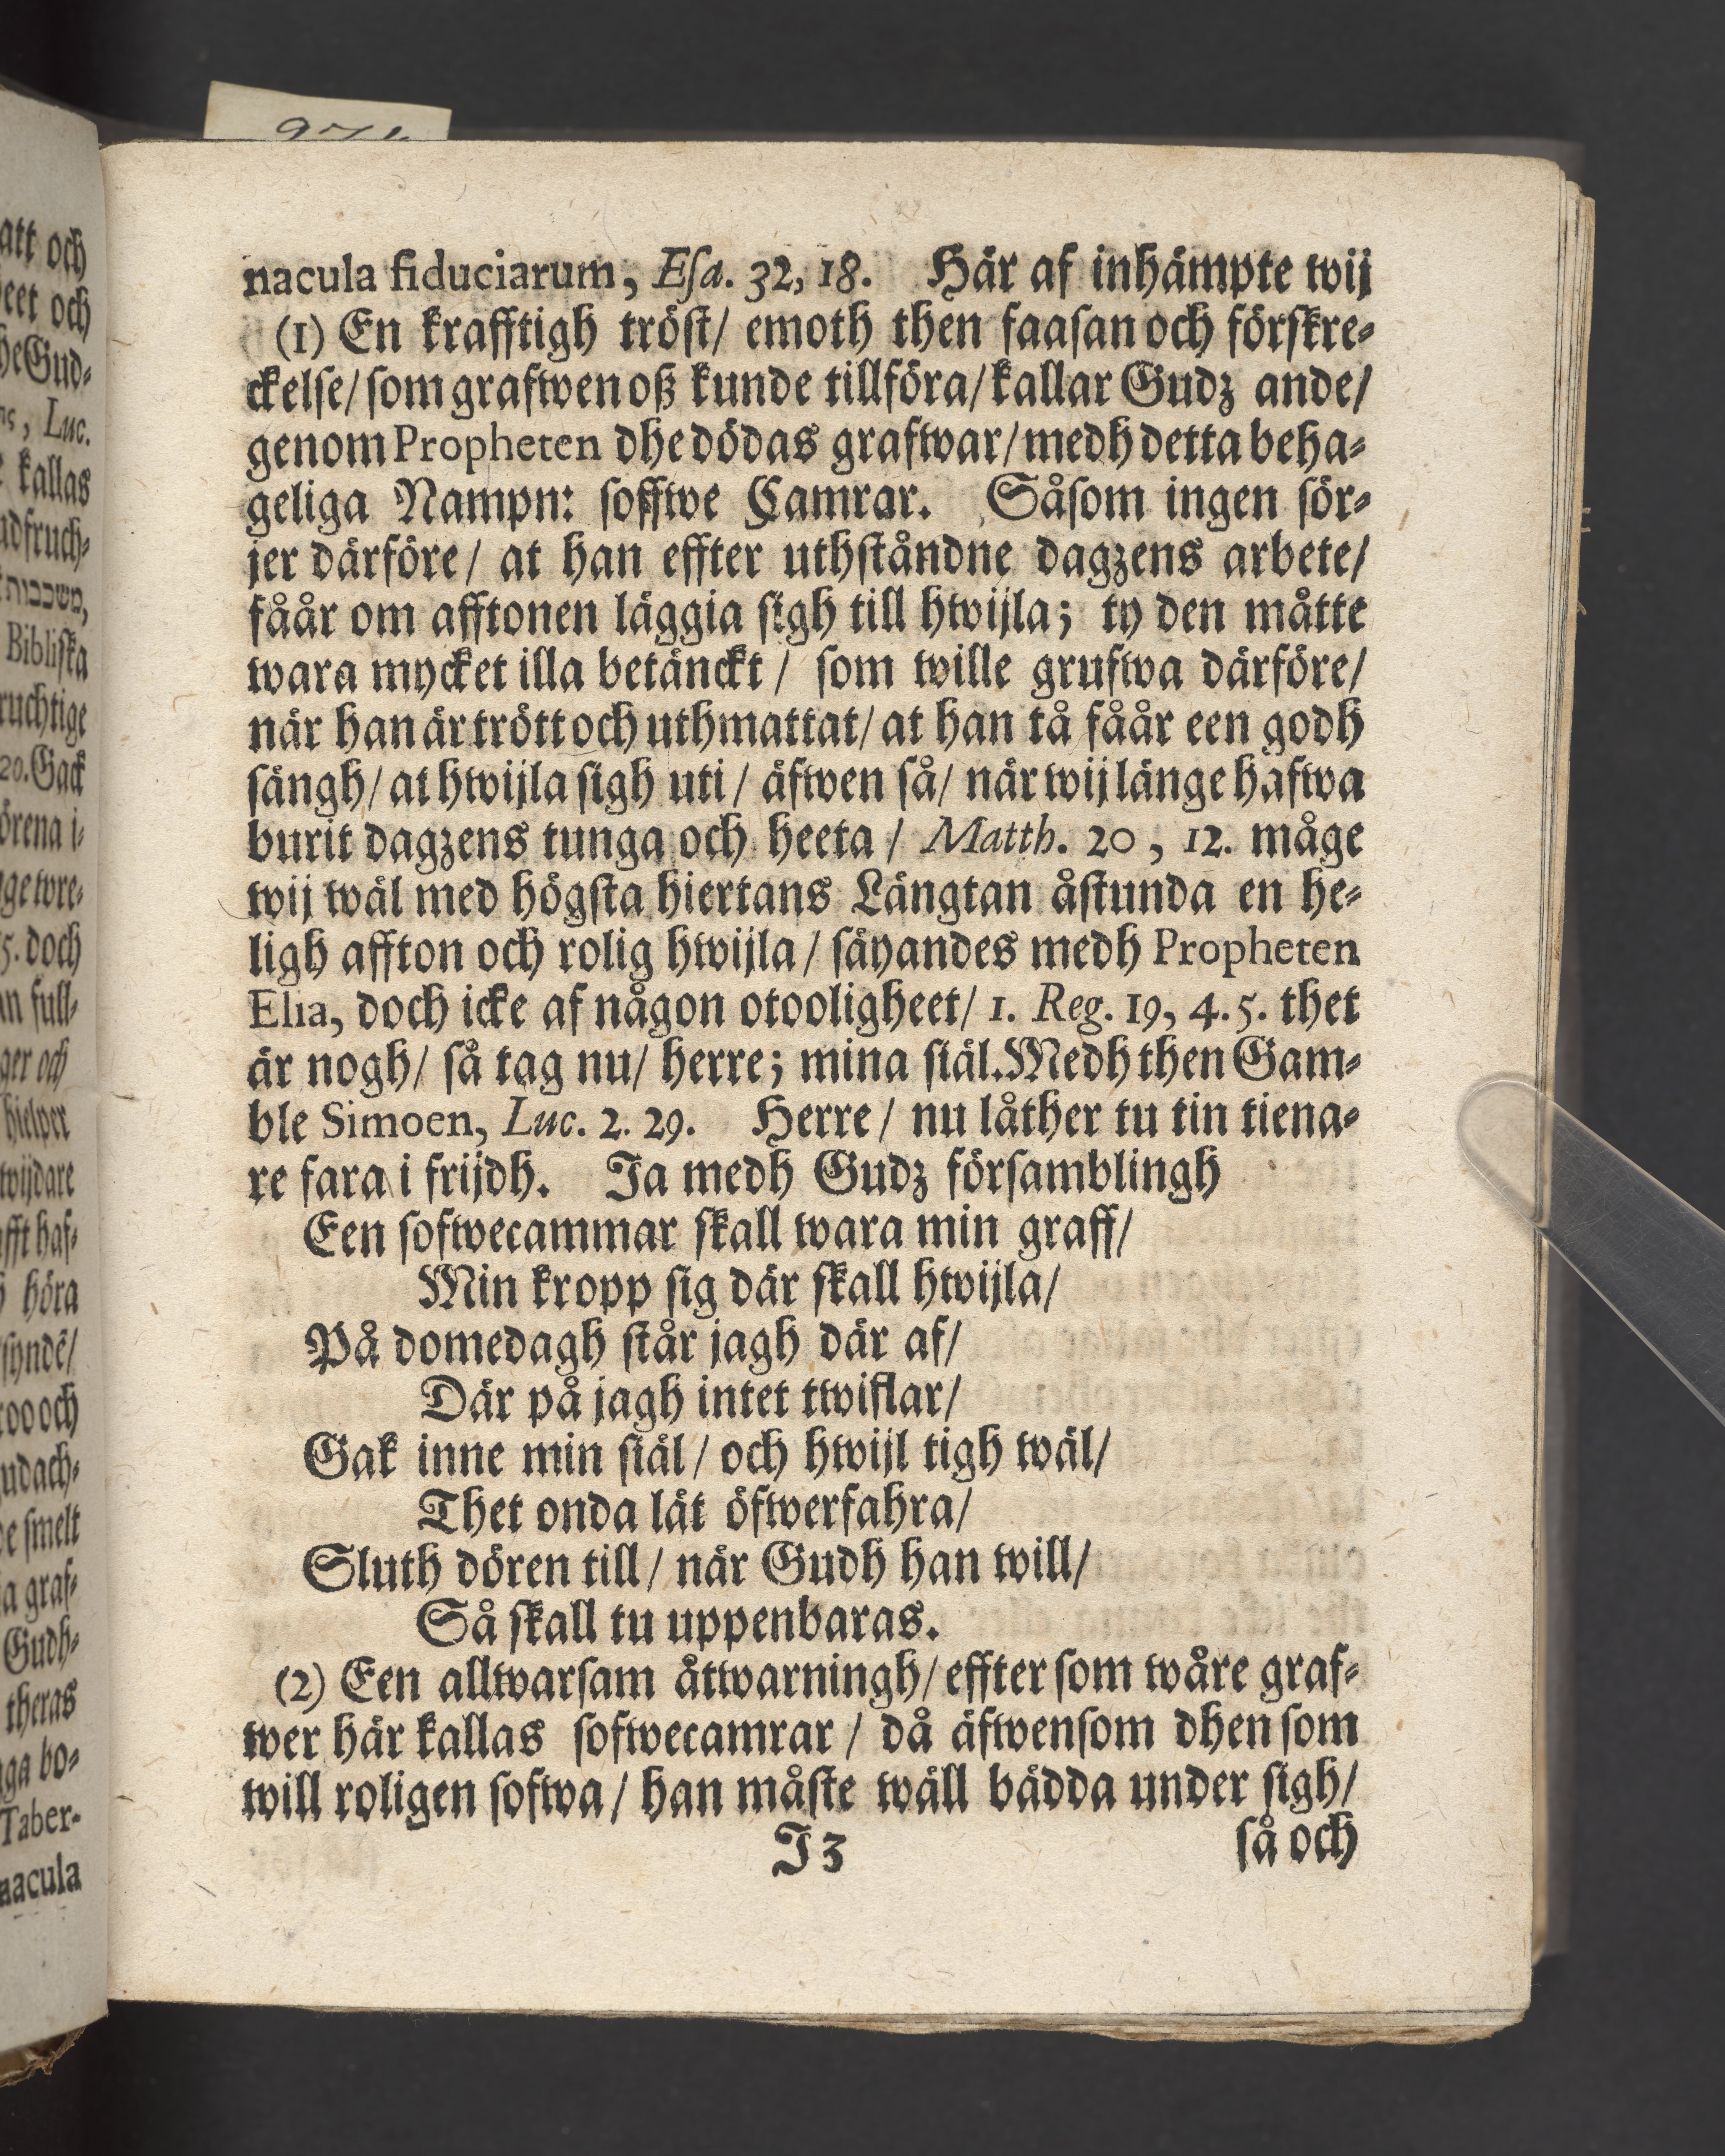 nacula fiduciarum, Esa. 32, 18. Här af inhämpte wij
(1) En krafftigh tröst/ emoth then faasan och förskre-
ckelse/ som grafwen oß kunde tillföra/ kallar Gudz ande/
genom Propheten dhe dödas grafwar/ medh detta beha-
geliga Nampn: soffwe Camrar. Såsom ingen sör-
jer därföre/ at han effter uthståndne dagzens arbete/
fåår om afftonen läggia sigh till hwijla; ty den måtte
wara mycket illa betänckt/ som wille grufwa därföre/
när han är trött och uthmattat/ at han tå fåår een godh
sängh/ at hwijla sigh uti/ äfwen så/ när wij länge hafwa
burit dagzens tunga och heeta/ Matth. 20, 12. måge
wij wäl med högsta hiertans Längtan åstunda en he-
ligh affton och rolig hwijla/ säyandes medh Propheten
Elia, doch icke af någon otooligheet/ 1. Reg. 19, 4. 5. thet
är nogh/ så tag nu/ herre; mina siäl. Medh then Gam-
ble Simoen, Luc. 2. 29. Herre/ nu låther tu tin tiena-
re fara i frijdh. Ja medh Gudz församblingh
Een sofwecammar skall wara min graff/
Min kropp sig där skall hwijla/
På domedagh står jagh där af/
Där på jagh intet twiflar/
Gak inne min siäl/ och hwijl tigh wäl/
Thet onda låt öfwerfahra/
Sluth dören till/ när Gudh han will/
Så skall tu uppenbaras.
(2) Een allwarsam åtwarningh/ effter som wåre graf-
wer här kallas sofwecamrar/ då äfwensom dhen som
will roligen sofwa/ han måste wäll bädda under sigh/
J 3 så och